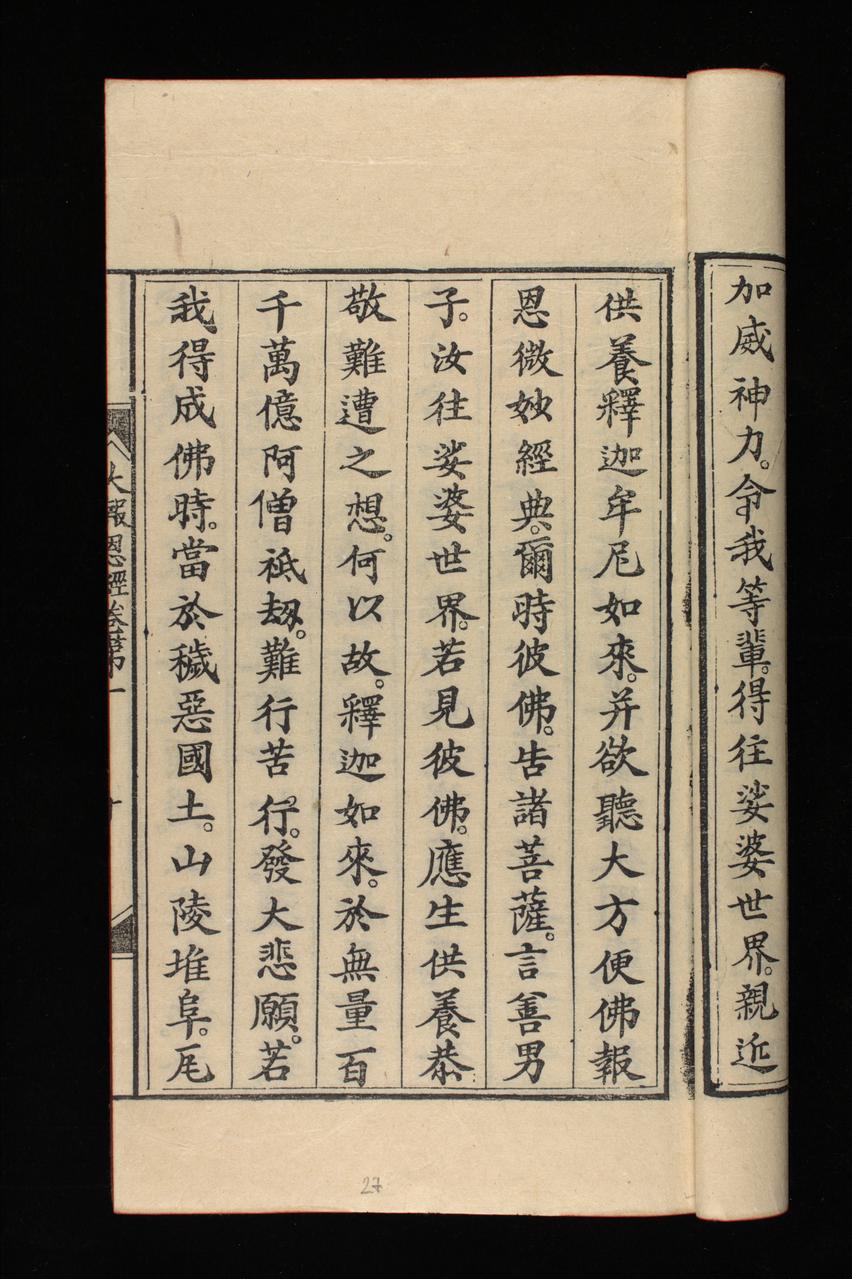 加威神力。令我等輩。得往娑婆世界。親近
供養釋迦牟尼如來。并欲聽大方便佛報
恩微妙經典。爾時彼佛。告諸菩薩。言善男
子。汝往娑婆世界。若見彼佛。應生供養恭
敬難遭之想。何以故。釋迦如來。於無量百
千萬億阿僧祇劫。難行苦行。發大悲願。若
我得成佛時。當於穢惡國土。山陵堆阜。瓦
大報恩經卷第一
27